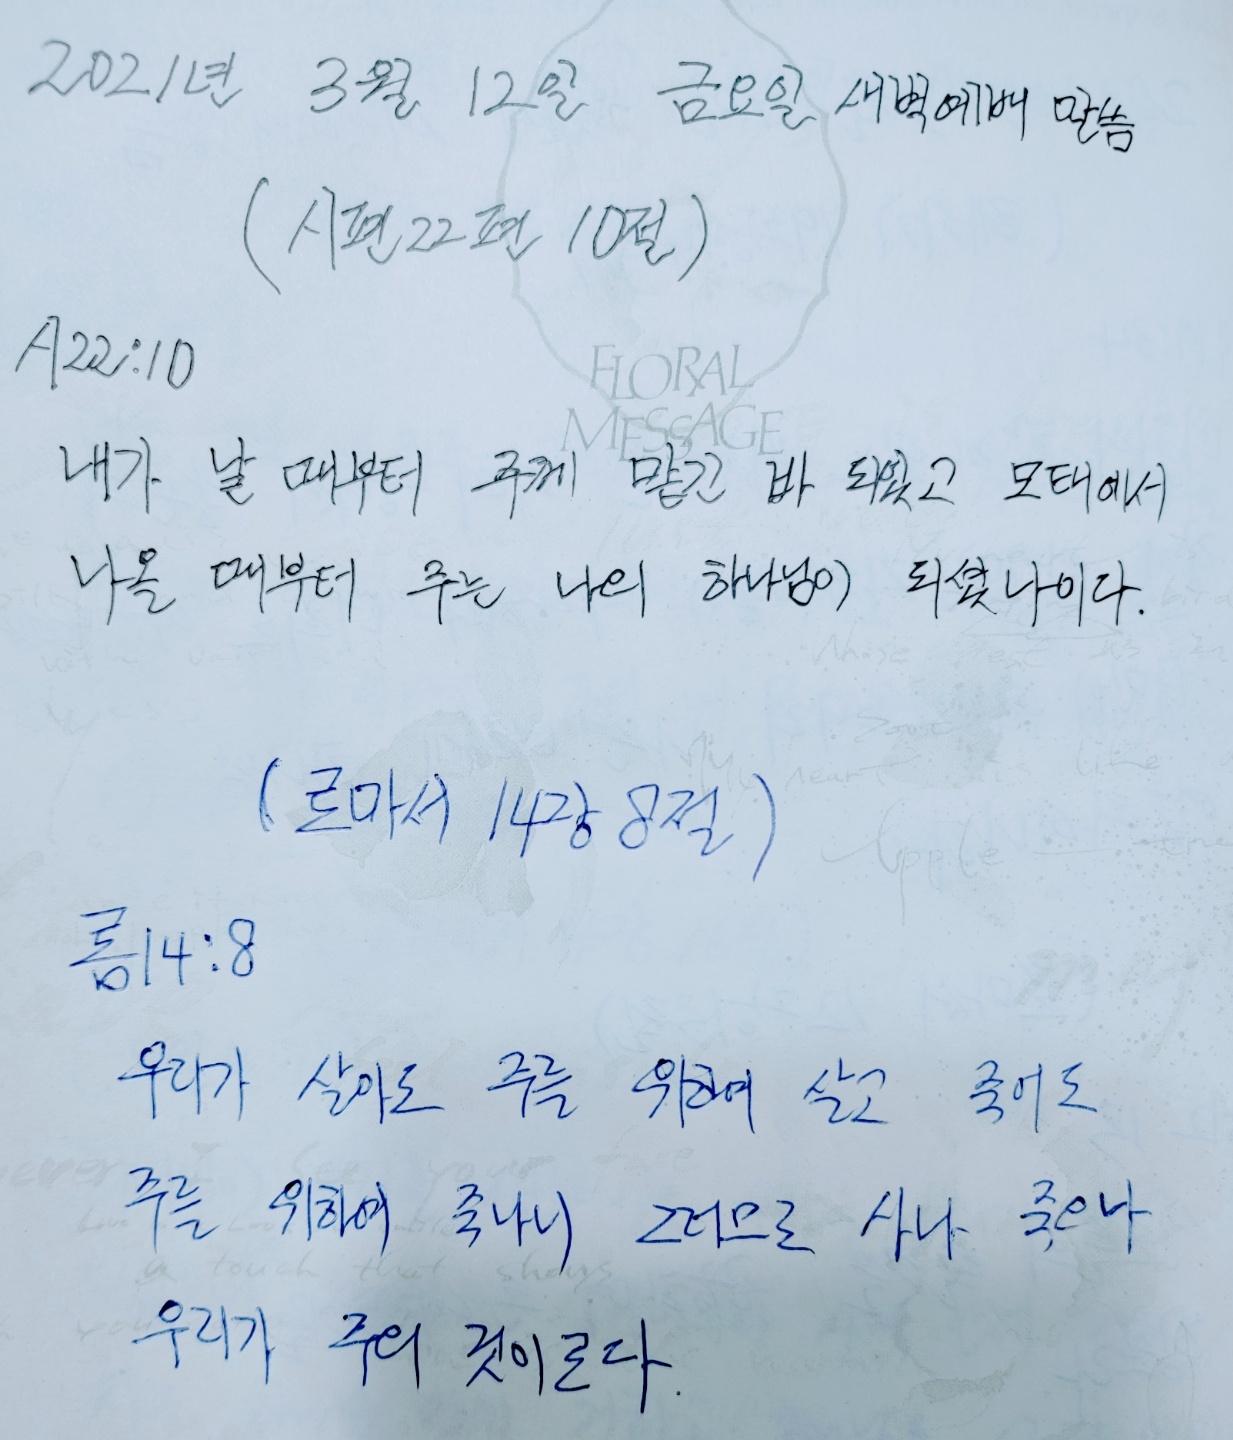 2021년 3월 12일 금요일 새벽예배 말씀
(시편22편 10절)
시22:10
FLORAL
MESSAGE
내가 날 때부터 주께 맡긴 바 되었고 모태에서
나올 때부터 주는 나의 하나님이 되셨나이다.
(로마서 14장 8절)
롬14:8
우리가 살아도 주를 위하여 살고 죽어도
주를 위하여 죽나니 그러므로 사나 죽으나
우리가 주의 것이로다.